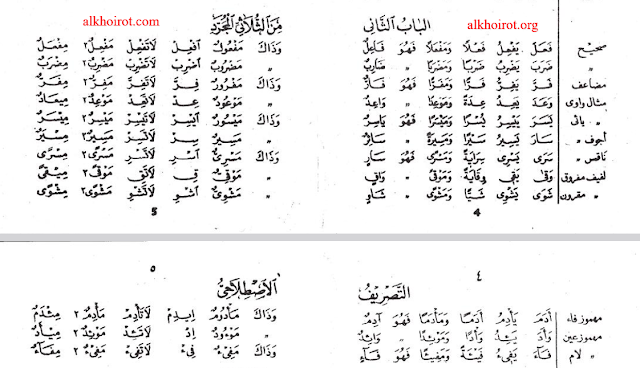 alkhoirot.org
الباب الثانى
صحيح فَعَلَ يَفْعِلُ فَعْلًا وَمَفْعَلًا فَهُوَ فَاعِلٌ
〃 ضَرَبَ يَضْرِبُ ضَرْبًا وَمَضْرَبًا 〃 ضَارِبٌ
مضاعف فَرَّ يَفِرُّ فَرًّا وَمَفَرًّا فَهُوَ فَارٌّ
مثال واوى وَعَدَ يَعِدُ عِدَةً وَمَوْعِدًا 〃 وَاعِدٌ
〃 يائى يَسَرَ يَيْسِرُ يُسْرًا وَمَيْسِرًا فَهُوَ يَاسِرٌ
أجوف 〃 سَارَ يَسِيرُ سَيْرًا وَمَسِيرَةً 〃 سَائِرٌ
ناقص 〃 سَرَى يَسْرِى سِرَايَةً وَمَسْرًى فَهُوَ سَارٍ
لفيف مفروق وَقَى يَقِى وِقَايَةً وَمَوْقًى 〃 وَاقٍ
〃 مقرون شَوَى يَشْوِى شَيًّا وَمَشْوًى 〃 شَاوٍ
4
alkhoirot.com
مِنَ الثُّلَاثِىِّ المُجَرَّدِ
وَذَاكَ مَفْعُولٌ اِفْعِلْ لَاتَفْعِلْ مَفْعِلٌ ٢ مِفْعَلٌ
〃 مَضْرُوبٌ اِضْرِبْ لَاتَضْرِبْ مَضْرِبٌ ٢ مِضْرَبٌ
وَذَاكَ مَفْرُورٌ فِرَّ لَاتَفِرَّ مَفِرٌّ ٢ مِفَرٌّ
〃 مَوْعُودٌ عِدْ لَاتَعِدْ مَوْعِدٌ ٢ مِيعَادٌ
وَذَاكَ مَيْسُورٌ اِيْسِرْ لَاتَيْسِرْ مَيْسِرٌ ٢ مِيْسَرٌ
〃 مَسِيرٌ سِرْ لَاتَسِرْ مَسِيرٌ ٢ مِسْيَرٌ
وَذَاكَ مَسْرِىٌّ اَسْرِ لَاتَسْرِ مَسْرًى ٢ مِسْرًى
〃 مَوْقِىٌّ قِ لَاتَقِ مَوْقًى ٢ مِيْقًى
〃 مَشْوِىٌّ اَشْوِ لَاتَشْوِ مَشْوًى ٢ مِشْوًى
5
٤
التَّصْرِيْفُ
مهموز فاء أَدَمَ يَأْدِمُ أَدْمًا وَمَأْدَمًا فَهُوَ آدِمٌ
مهموز عين وَأَدَ يَئِدُ وَأْدًا وَمَوْئِدًا 〃 وَائِدٌ
〃 لام فَاءَ يَفِىءُ فَيْئَةً وَمَفِيْئًا فَهُوَ فَاءٍ
٥
الْإِصْطِلَاحِىُّ
وَذَاكَ مَأْدُومٌ اِيدِمْ لَاتَأْدِمْ مَأْدِمٌ ٢ مِئْدَمٌ
〃 مَوْءُودٌ اِدْ لَاتَئِدْ مَوْئِدٌ ٢ مِيْأَدٌ
وَذَاكَ مَفِىءٌ فِىءْ لَاتَفِىءْ مَفِىءٌ ٢ مِفَاءٌ